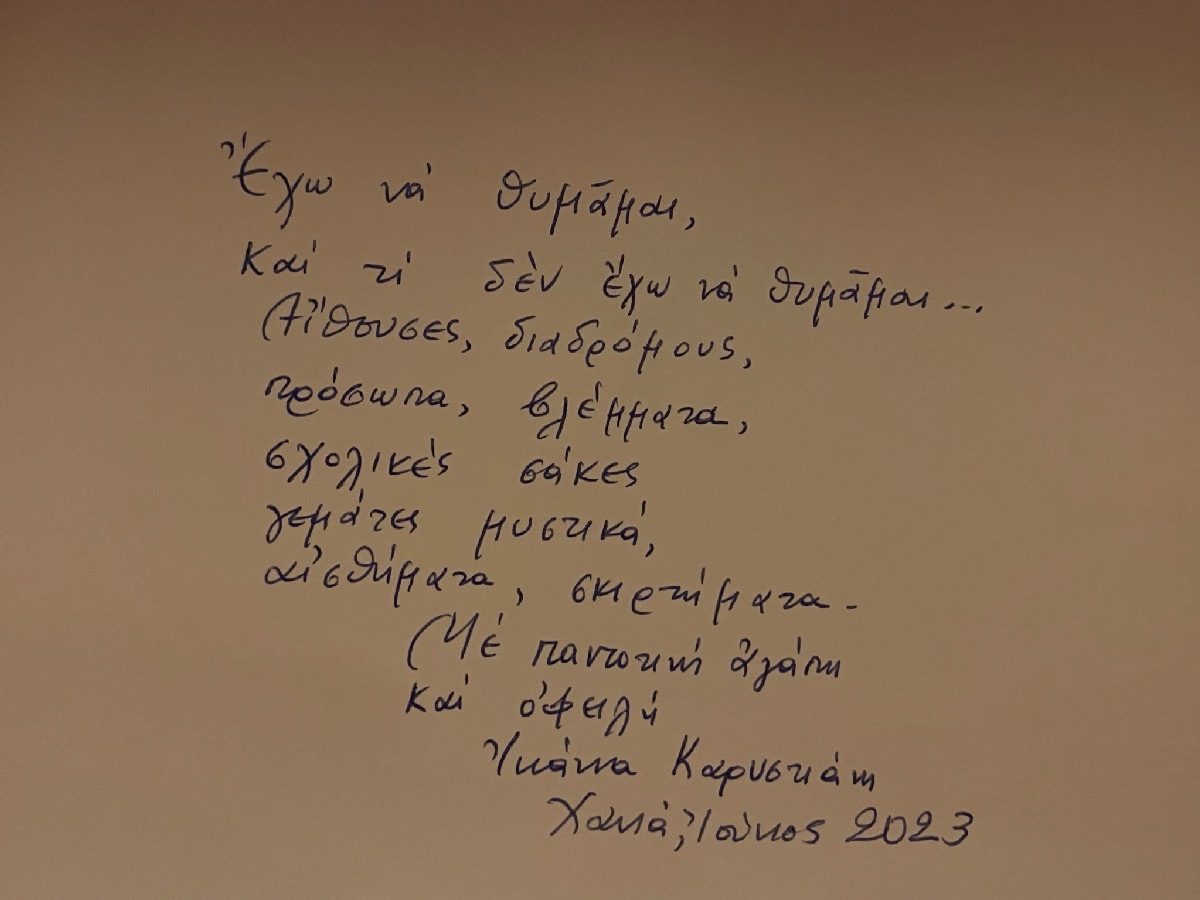 Ἔχω νά θυμᾶμαι,
Καί τί δέν ἔχω νά θυμᾶμαι...
Αἴθουσες, διαδρόμους,
πρόσωπα, βλέμματα,
σχολικές σάκες
γεμάτες μυστικά,
αἰσθήματα, σκιρτήματα.
Μέ παντοτινή ἀγάπη
καί ὀφειλή
Ἰωάννα Καρυστιάνη
Χανιά, Ἰούνιος 2023